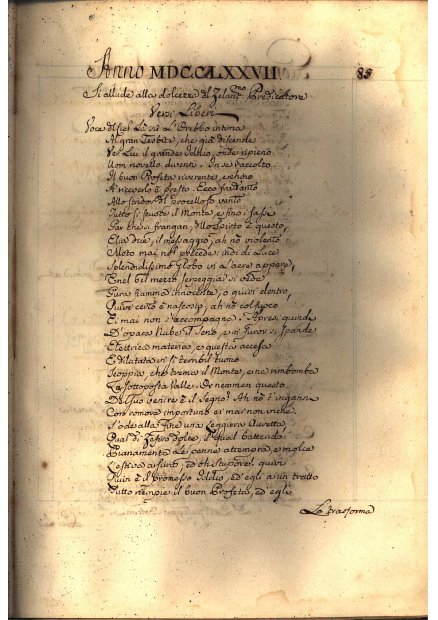 Anno MDCCLXXVII
85
Si allude alla dolcezza del Zelan.mo Predicatore
Versi Liberi
Voce del Ciel là su l'Orebbo intona
Al gran Tesbite, che già discende
Ver Lui il grande Iddio, onde ripieno
Uom novello diventi. In se raccolto
Il buon Profeta riverente, e chino
A riceverlo è presto. Ecco frattanto
Allo stridor del procelloso vento
Tutto si scuote il Monte, e fino i sassi
Par che si frangan; dello Spirto è questo,
Elia dice, il messaggio, ah nò violento
Moto mai nol precede: indi di luce
Splendidissimo Globo in l'aere appare,
E nel bel mezzo serpeggia si vede
Pura fiamma innocente, o quivi dentro,
Quivi certo è nascosto, ah nò col fuoco
Ei mai non s'accompagna. Apresi quinde
D'opaca Nube il Seno, e in furor si spande
Elettrica materia, e questa accesa
E dilatata in sì terribil tuono
Scoppia, che trema il Monte, e ne rimbomba
La sottoposta Valle. Or neimmen questo
Del suo venire è il segno? Ah nò t'inganna
Con romore importuno ei mai non viene.
S'ode alla fine una leggiera Auretta,
Qual di Zefiro dolce, il qual battendo
Pianamente le penne attempra, e molce
L'estivo arsura; ed oh stupore! quivi
Quivi è il promesso Iddio, ed egli a un tratto
Tutto riempie il buon Profeta, ed egli
Lo trasforma